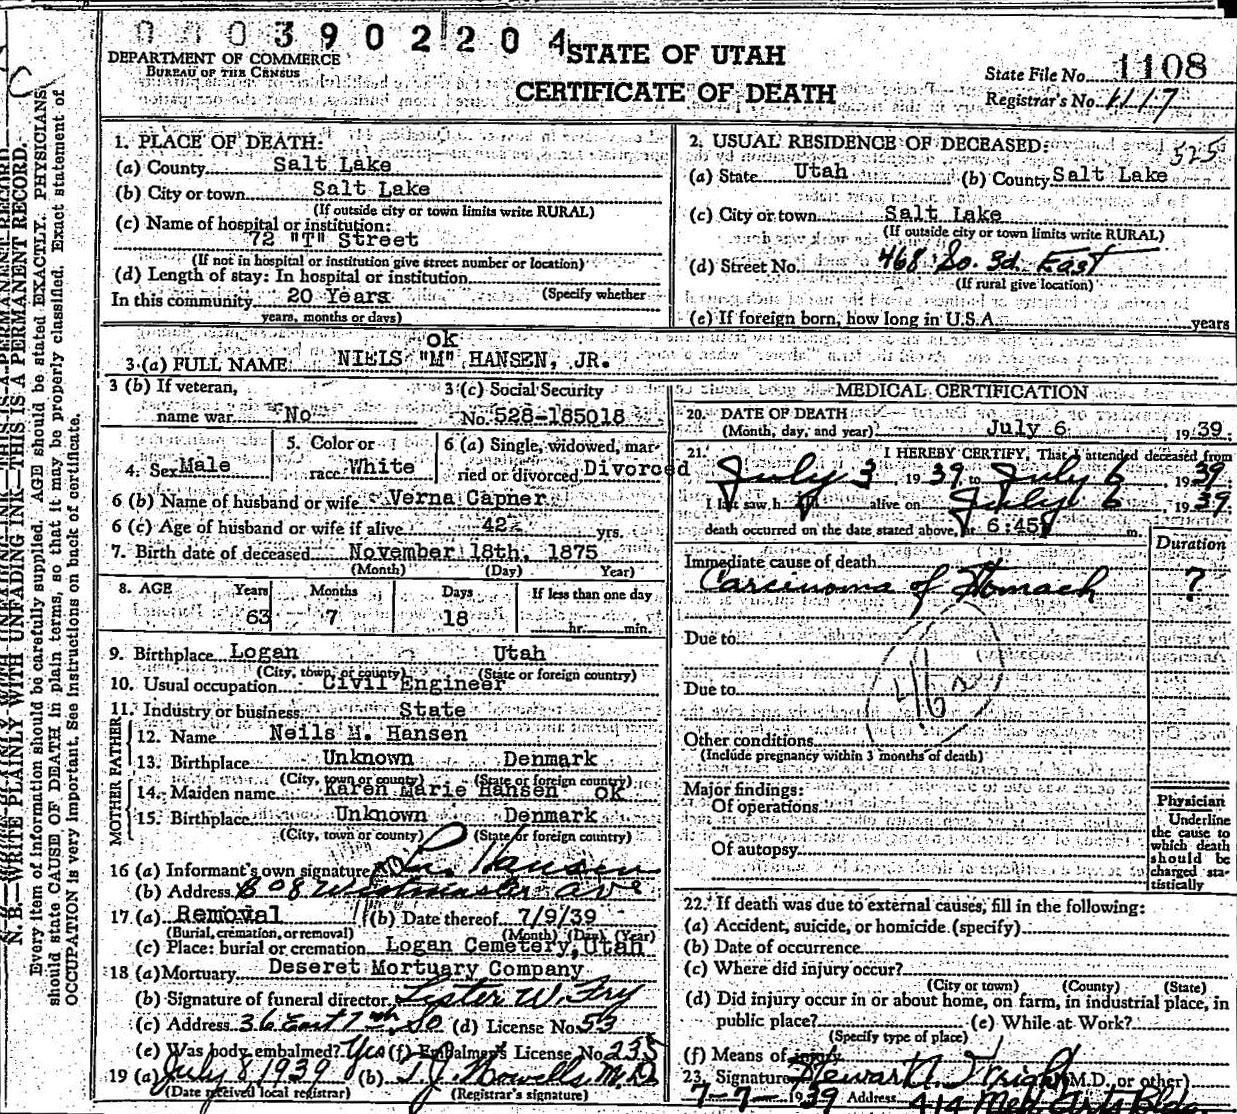 0003902204
STATE OF UTAH
CERTIFICATE OF DEATH
DEPARTMENT OF COMMERCE
BUREAU OF THE CENSUS
State File No. 1108
Registrar's No. 1117
N. B.—WRITE PLAINLY WITH UNFADING INK—THIS IS A PERMANENT RECORD.
Every item of information should be carefully supplied. AGE should be stated EXACTLY. PHYSICIANS
should state CAUSE OF DEATH in plain terms, so that it may be properly classified. Exact statement of
OCCUPATION is very important. See instructions on back of certificate.
1. PLACE OF DEATH:
(a) County Salt Lake
(b) City or town Salt Lake
(If outside city or town limits write RURAL)
(c) Name of hospital or institution:
72 "T" Street
(If not in hospital or institution give street number or location)
(d) Length of stay: In hospital or institution
(Specify whether
In this community 20 Years
years, months or days)
2. USUAL RESIDENCE OF DECEASED:
525
(a) State Utah (b) County Salt Lake
(c) City or town Salt Lake
(If outside city or town limits write RURAL)
(d) Street No. 468 So. 3d. East
(If rural give location)
(e) If foreign born, how long in U.S.A. years
ok
3 (a) FULL NAME NIELS "M" HANSEN, JR.
3 (b) If veteran,
name war No
3 (c) Social Security
No. 528-185018
4. Sex Male
5. Color or
race White
6 (a) Single, widowed, mar-
ried or divorced Divorced
6 (b) Name of husband or wife Verna Capner
6 (c) Age of husband or wife if alive 42 yrs.
7. Birth date of deceased November 18th, 1875
(Month) (Day) Year)
8. AGE Years Months Days If less than one day
63 7 18 hr. min.
9. Birthplace Logan Utah
(City, town, or county) (State or foreign country)
10. Usual occupation Civil Engineer
11. Industry or business State
FATHER
12. Name Neils M. Hansen
13. Birthplace Unknown Denmark
(City, town or county) (State or foreign country)
MOTHER
14. Maiden name Karen Marie Hansen OK
15. Birthplace Unknown Denmark
(City, town or county) (State or foreign country)
16 (a) Informant's own signature Hansen
(b) Address 808 Westminster ave
17. (a) Removal (b) Date thereof 7/9/39
(Burial, cremation, or removal) (Month) (Day) (Year)
(c) Place: burial or cremation Logan Cemetery, Utah
18 (a) Mortuary Deseret Mortuary Company
(b) Signature of funeral director Lester W. Fry
(c) Address 36 East 7th So (d) License No. 53
(e) Was body embalmed? Yes (f) Embalmer's License No. 235
19 (a) July 8, 1939 (b) T. J. Howells M.D.
(Date received local registrar) (Registrar's signature)
MEDICAL CERTIFICATION
20. DATE OF DEATH
(Month, day, and year) July 6, 1939.
21. I HEREBY CERTIFY, That I attended deceased from
July 3, 1939 to July 6, 1939.
I last saw h alive on July 6, 1939.
death occurred on the date stated above, 6:45 P m.
Immediate cause of death
Duration
Carcinoma of Stomach ?
Due to
46
Due to
Other conditions
(Include pregnancy within 3 months of death)
Major findings:
Of operations
Of autopsy
Physician
Underline
the cause to
which death
should be
charged sta-
tistically
22. If death was due to external causes, fill in the following:
(a) Accident, suicide, or homicide (specify)
(b) Date of occurrence
(c) Where did injury occur?
(City or town) (County) (State)
(d) Did injury occur in or about home, on farm, in industrial place, in
public place? (e) While at Work?
(Specify type of place)
(f) Means of injury
23. Signature Stewart A. Wright (M.D. or other)
7-7- 1939 Address 414 Med Arts Bldg